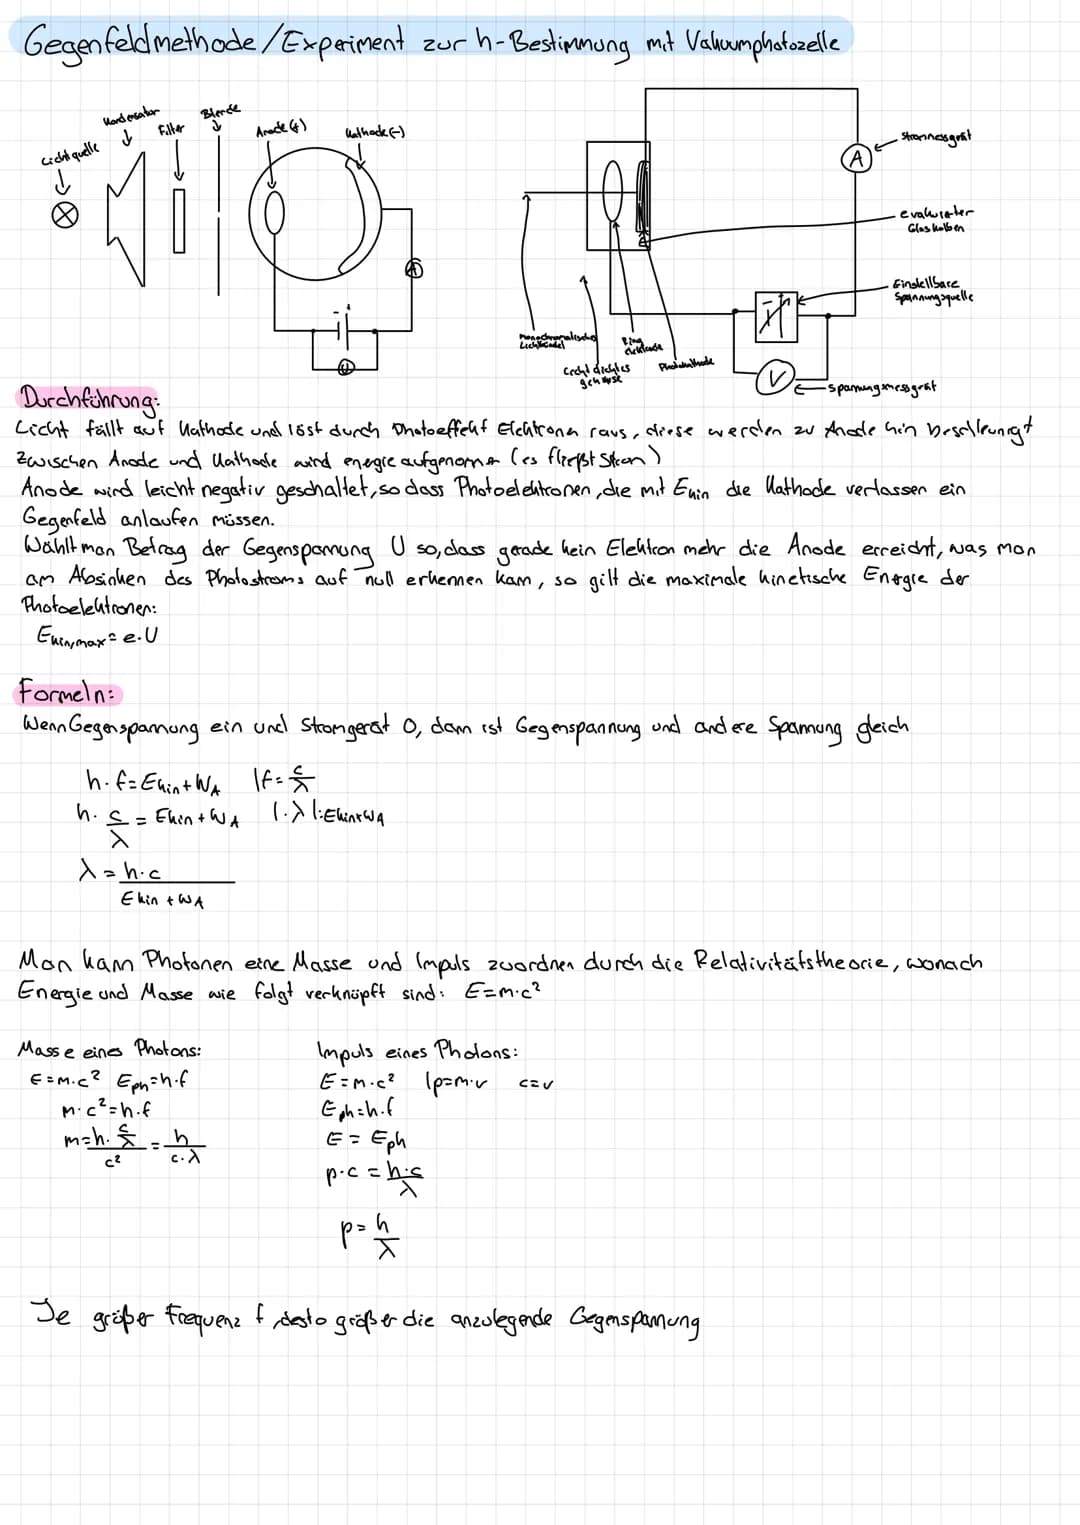 Gegenfeldmethode/Experiment zur h-Bestimmung mit Vakuumphotozelle
Lichtquelle
Kondensator
Filter
Blende
Anode (+)
Kathode (-)
A
U
Strommessgerät
A
evakuierter
Glaskolben
Einstellbare
Spannungsquelle
monochromatisches
Lichtbündel
Ring
elektrode
Photokathode
Licht dichtes
gehäuse
V
Spannungsmessgerät
Durchführung:
Licht fällt auf Kathode und löst durch Photoeffekt Elektronen raus, diese werden zu Anode hin beschleunigt
Zwischen Anode und Kathode wird energie aufgenommen (es fließt Strom)
Anode wird leicht negativ geschaltet, so dass Photoelektronen, die mit Ekin die Kathode verlassen ein
Gegenfeld anlaufen müssen.
Wählt man Betrag der Gegenspannung U so, dass gerade kein Elektron mehr die Anode erreicht, was man
am Absinken des Photostroms auf null erkennen kann, so gilt die maximale kinetische Energie der
Photoelektronen:
Ekin,max = e·U
Formeln:
Wenn Gegenspannung ein und Stromgerät 0, dann ist Gegenspannung und andere Spannung gleich
h·f = Ekin + WA |f = c/λ
h· c/λ = Ekin + WA |·λ |:Ekin+WA
λ = h·c / Ekin + WA
Man kann Photonen eine Masse und Impuls zuordnen durch die Relativitätstheorie, wonach
Energie und Masse wie folgt verknüpft sind: E=m·c²
Masse eines Photons:
E=m·c² Eph=h·f
m·c²=h·f
m=h· c/λ / c² = h / c·λ
Impuls eines Photons:
E=m·c² |p=m·v c=v
Eph=h·f
E = Eph
p·c = h·c/λ
p = h/λ
Je größer Frequenz f, desto größer die anzulegende Gegenspannung